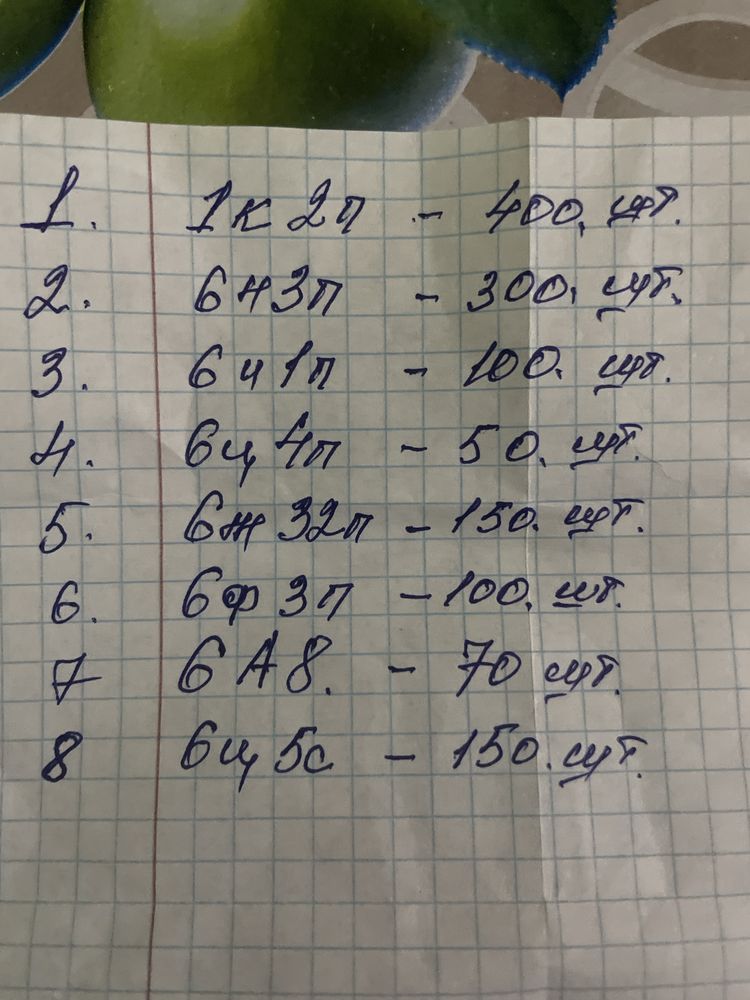 1. 1к2п - 400. шт.
2. 6н3п - 300. шт.
3. 6и1п - 100. шт.
4. 6ц4п - 50. шт.
5. 6ж32п - 150. шт.
6. 6ф3п - 100. шт.
7 6А8. - 70 шт.
8 6ц5с - 150. шт.